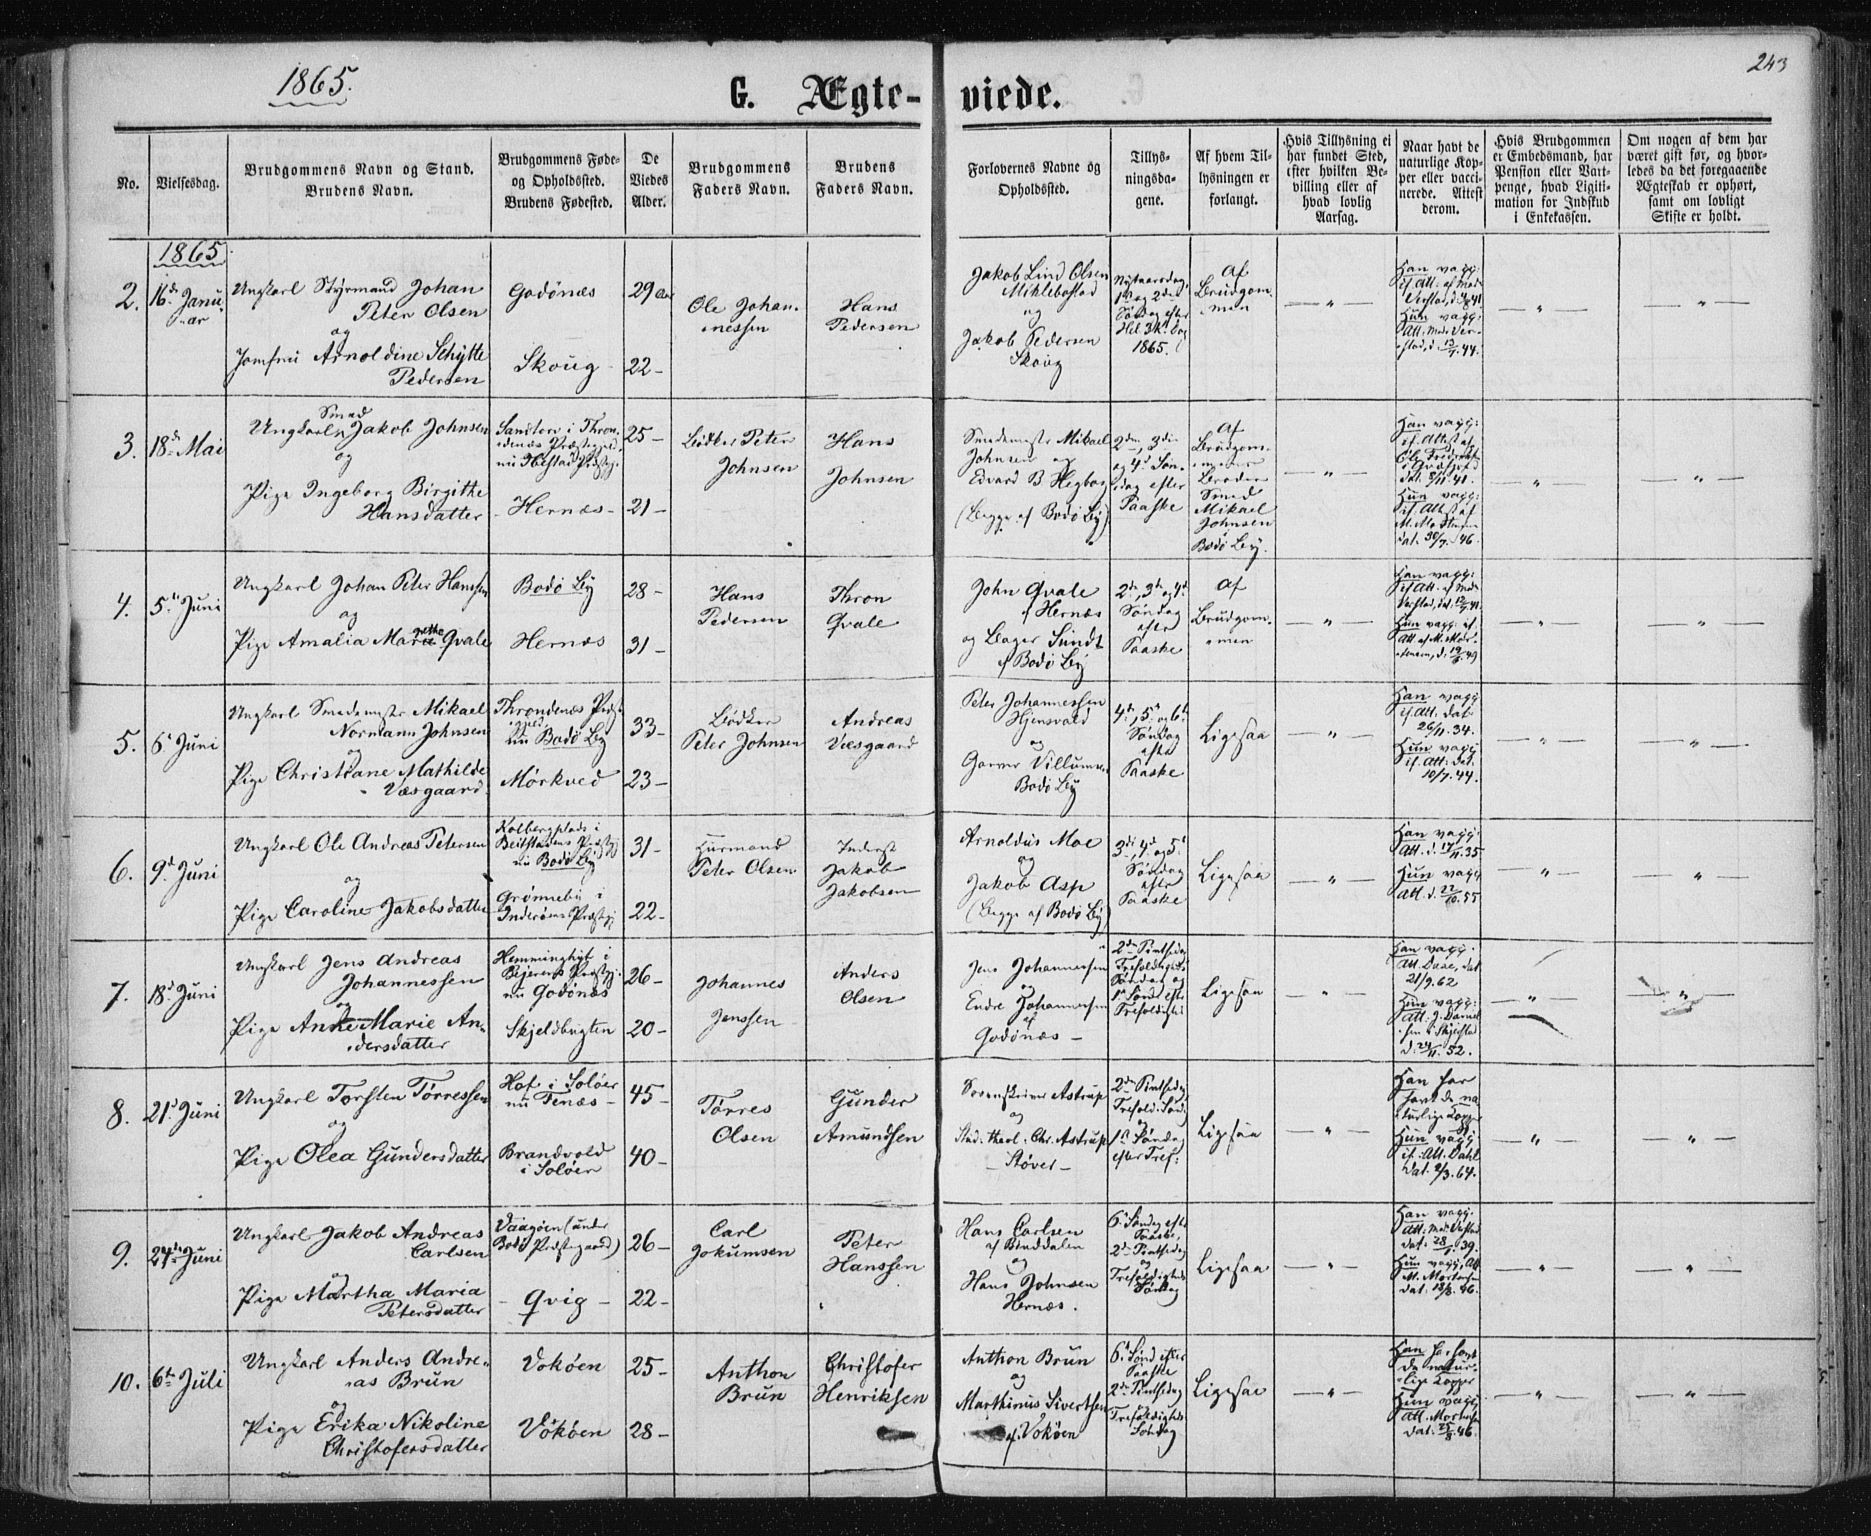 1865.
G. Ægte-
viede.
243
No.
Vielsesdag.
Brudgommens Navn og Stand.
Brudens Navn.
Brudgommens Føde-
og Opholdssted.
Brudens Fødested.
De
Viedes
Alder.
Brudgommens
Faders Navn.
Brudens
Faders Navn.
Forlovernes Navne og
Opholdssted.
Tillys-
ningsda-
gene.
Af hvem Til-
lysningen er
forlangt.
Hvis Tillysning ei
har fundet Sted,
efter hvilken Be-
villing eller af
hvad lovlig
Aarsag.
Naar havt de
naturlige Kop-
per eller vacci-
nerede. Attest
derom.
Hvis Brudgommen
er Embedsmand, har
Pension eller Vart-
penge, hvad Ligiti-
mation for Indskud
i Enkekassen.
Om nogen af dem har
været gift før, og hvor-
ledes da det foregaaende
Ægteskab er ophørt,
samt om lovligt
Skifte er holdt.
1865
2.
16de Janu-
ar
Ungkarl Styrmand Johan
Peter Olsen
og
Jomfru Arnoldine Schytte
Pedersen
Godönæs
Skoug -
29 Aar
22 -
Ole Johan-
nessen
Hans
Pedersen
Jakob Lind Olsen
Miklebostad
og
Jakob Pedersen
Skoug
Nytaarsdag,
1ste og 2den
Söndag efter
Hel. 3k. Dag
1865.
Af
Brudgom-
men
— " —
Han vagg:
if. Att. af Med.
Hun vagg:
— " —
— " —
3.
18de Mai
Smed
Ungkarl Jakob Johnsen
og
Pige Ingeborg Birgithe
Hansdatter
Sandtorv i Thron-
denæs Præstegjeld,
nu Ibestad Præstgj.
- Hernæs -
25 -
21 -
Bödker Peter
Johnsen
Hans
Johnsen
Smedemester Mikael
Johnsen og
Edvard B Hegbog
(Begge af Bodö By)
2den, 3die
og 4de Søn-
dag efter
Paaske
Af
Brudgom-
mens
Broder
Smed
Mikael
Johnsen
Bodö By.
— " —
Han vagg:
if. Attest af
Ole Fredriks
dat. 8/11.41.
Hun vagg:
if. Attest af
dat. 30/7.46.
— " —
— " —
4.
5te Juni
Ungkarl Johan Peter Hanssen
og
Pige Amalia Marie Qvale
Bodö By
Hernæs
28 -
31 -
Hans
Pedersen
Thron
Qvale
John Qvale
af Hernæs
og Bager Sundt
af Bodö By
2den, 3die og 4de
Söndag
efter
Paaske
Af
Brudgom-
men
— " —
Han vagg:
if. Att. af Med.
Hun vagg: af
— " —
— " —
5.
6te Juni
Ungkarl Smedemester Mikael
Normann Johnsen
og
Pige Christiane Mathilde
Væsgaard
Throndenæs Præst-
nu Bodö By
Mörkved
33 -
23 -
Bödker
Peter Johnsen
Andreas
Væsgaard
Peter Johannessen
Hjensvold
og
Garver Villumsen
Bodö By
4de, 5te og 6te
Söndag
efter
Paaske
Ligesaa
— " —
Han vagg:
if. Att. dat.
26/11.34.
Hun vagg:
if. Att. dat.
10/7.44.
— " —
— " —
6.
9de Juni
Ungkarl Ole Andreas Petersen
og
Pige Caroline Jakobsdatter
Kolbergplads i
Beitstadens Præstgj
nu Bodö By
Grönneby i
Inderöens Præstgj
31 -
22 -
Huusmand
Peter Olsen
Inderst
Jakob
Jakobsen
Arnoldus Moe
og
Jakob Asp
(Begge af Bodö By)
3die, 4de og 5te
Söndag
efter
Paaske
Ligesaa
— " —
Han vagg:
Att. d. 17/11.35
Hun vagg
Att. d. 22/10.55
— " —
— " —
7.
18de Juni
Ungkarl Jens Andreas
Johannessen
og
Pige Anne Marie An-
dersdatter
Hemminghyt i
Bejerens Præstgj:
nu Godönæs
Skjeldbugten
26 -
20 -
Johannes
Jenssen
Anders
Olsen
Jens Johannessen
og
Endre Johannessen
af
Godönæs -
2den Pintsedag
Trefoldigheds
Söndag og
1ste Sönd. efter
Trefoldighed
Ligesaa
— " —
Han vagg.
Att. Dase, dat
21/9.62
Hun vagg:
Att. J. Daniel-
sen i Skjerstad
d. 24/11.52.
— " —
— " —
8.
21de Juni
Ungkarl Torsten Törressen
og
Pige Olea Gundersdatter
Hof i Solöer
nu Fenæs -
Brandvold
i Solöer
45 -
40 -
Törres
Olsen
Gunder
Amundsen
Sorenskriver Astrup
og
Stud. theol. Chr. Astrup
- Stöver -
2den Pintsedag
Trefold. Sönd.
og
1ste Söndag
efter Tref:
Ligesaa
— " —
Han har
havt de na-
turlige Kopper
Hun vagg
if: Att. Dahl
dat. 2/3.64.
— " —
— " —
9.
24de Juni
Ungkarl Jakob Andreas
Carlsen
og
Pige Martha Maria
Petersdatter
Vaagöen (under
Bodö Præstegaard)
- Qvig -
26 -
22 -
Carl
Jokumsen
Peter
Hanssen
Hans Carlsen
af Binddalen
og
Hans Johnsen
Hernæs.
6te Söndag efter
Paaske,
2den Pintsedag
og
Trefoldigheds
Söndag
Ligesaa
— " —
Han vagg:
Hun vagg: Att
M. Mortensen
dat. 18/8.46.
— " —
— " —
10.
6te Juli
Ungkarl Anders Andre-
as Brun
og
Pige Erika Nikoline
Christofersdatter
Voköen
Voköen
25 -
28 -
Anthon
Brun
Christofer
Henriksen
Anthon Brun
og
Marthinus Sivertsen
af Voköen
6te Sönd efter
Paaske
2den Pintsedag
og
Trefoldigheds
Söndag
Ligesaa
— " —
Han har havt
de natur-
lige Kopper
Hun vagg:
Att. Mortensen
dat. 25/8.46.
— " —
— " —